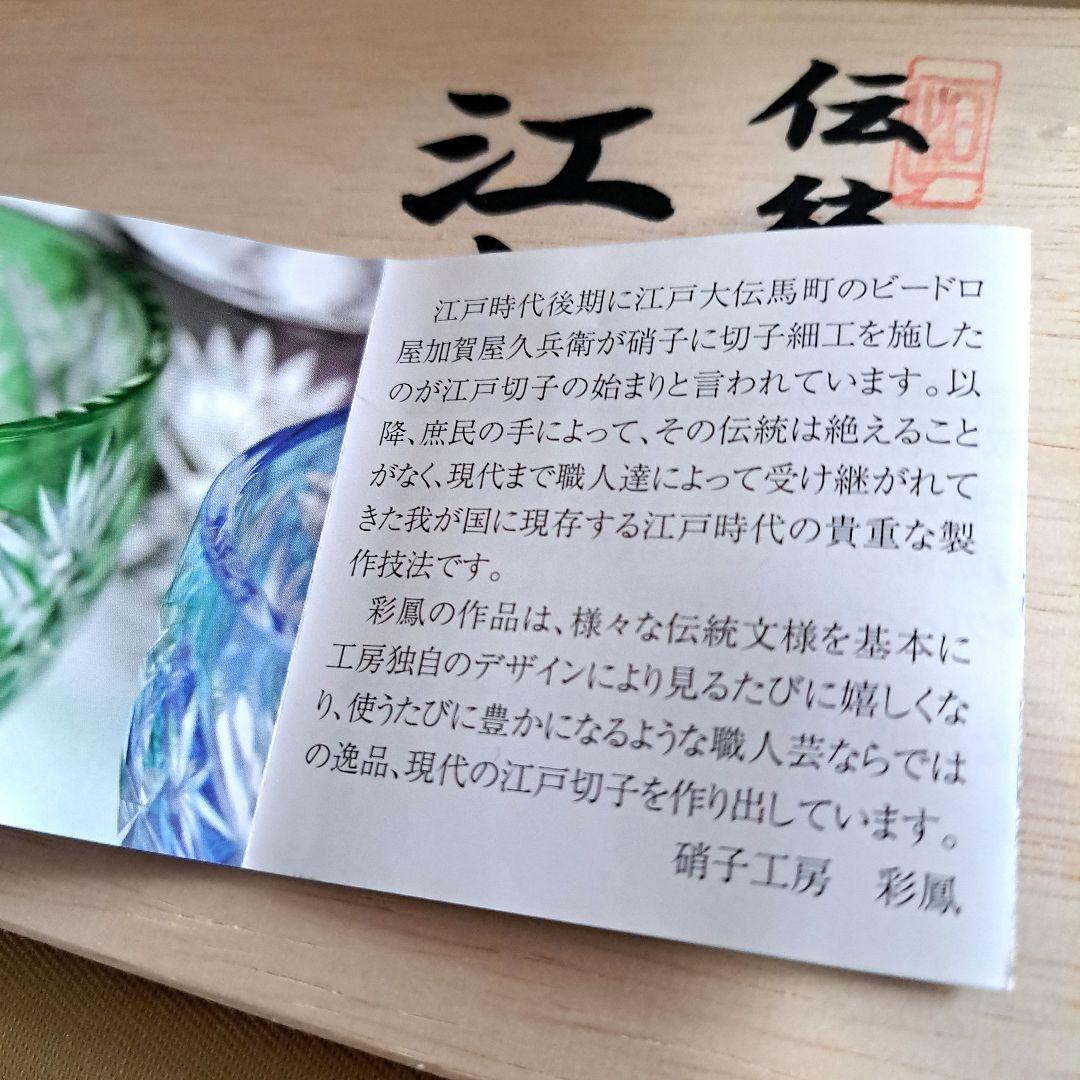 伝統
江
江戸時代後期に江戸大伝馬町のビードロ
屋加賀屋久兵衛が硝子に切子細工を施した
のが江戸切子の始まりと言われています。以
降、庶民の手によって、その伝統は絶えること
がなく、現代まで職人達によって受け継がれて
きた我が国に現存する江戸時代の貴重な製
作技法です。
彩鳳の作品は、様々な伝統文様を基本に
工房独自のデザインにより見るたびに嬉しくな
り、使うたびに豊かになるような職人芸ならでは
の逸品、現代の江戸切子を作り出しています。
硝子工房 彩鳳